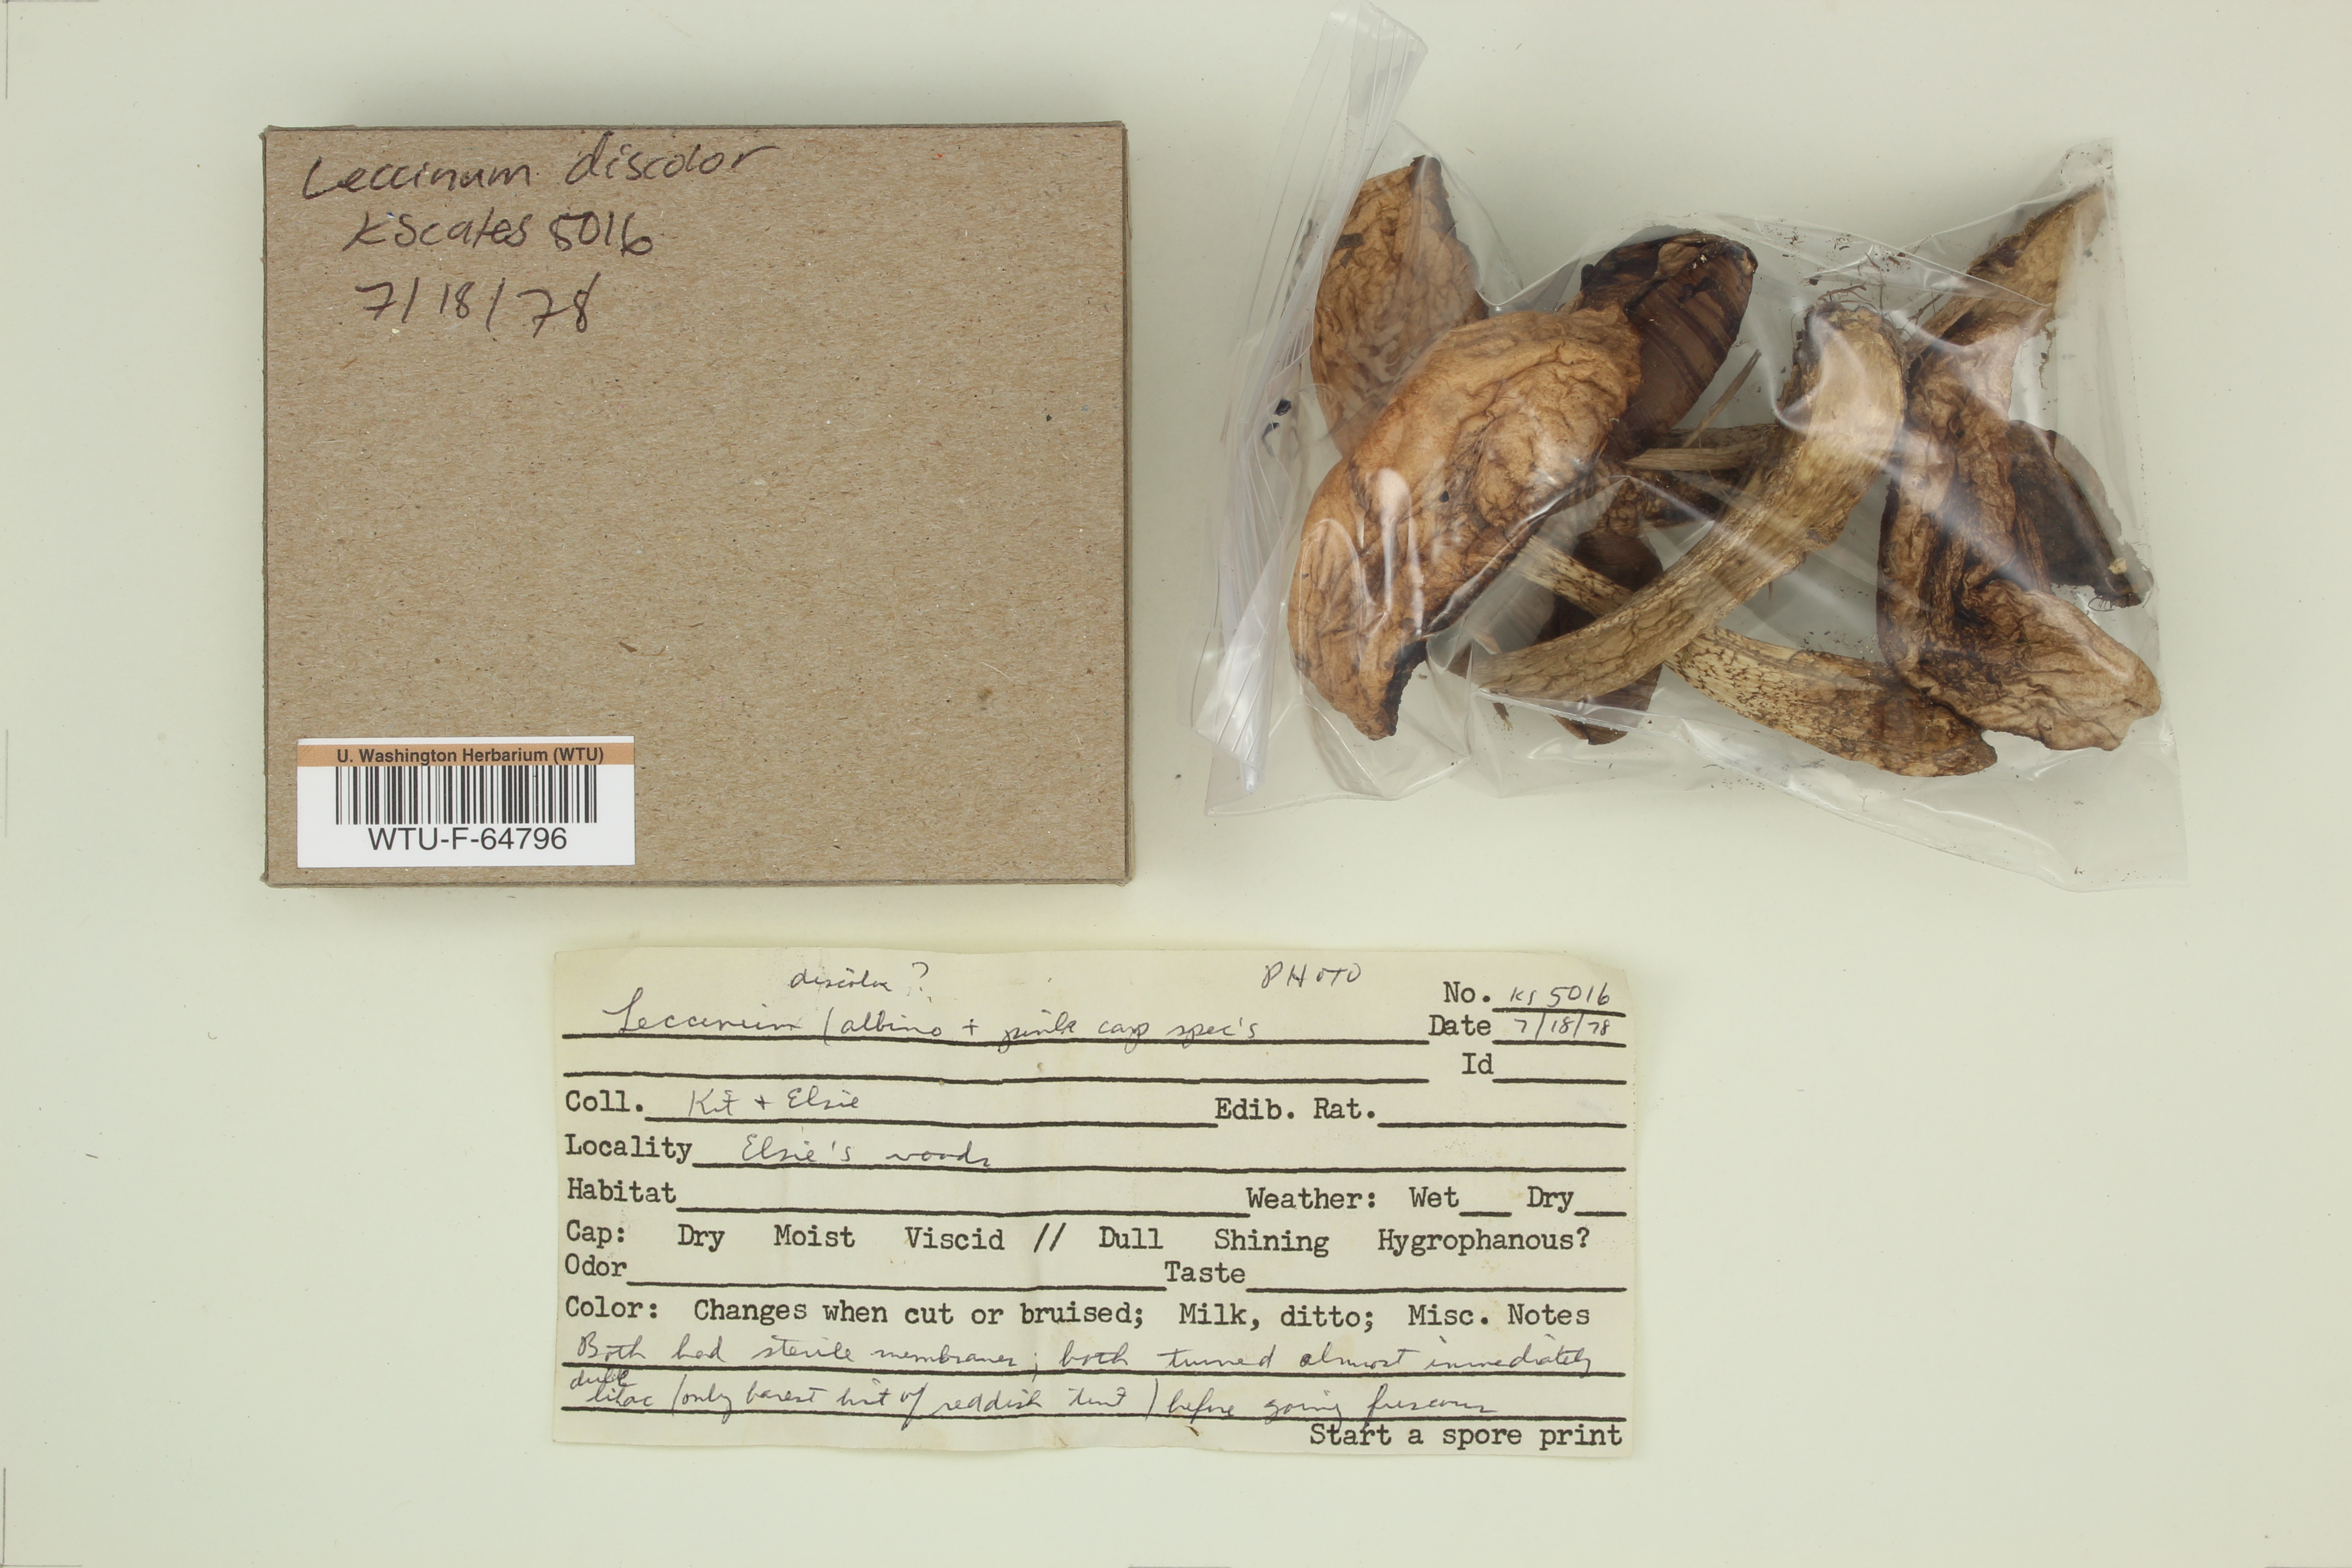 Leccinum discolor
KScates 5016
7/18/78
U. Washington Herbarium (WTU)
WTU-F-64796
discolor?
PHOTO
No. KS 5016
Leccinum (albino + pink cap spec's
Date 7/18/78
Id
Coll. Kit + Elsie Edib. Rat.
Locality Elsie's woods
Habitat Weather: Wet Dry
Cap: Dry Moist Viscid // Dull Shining Hygrophanous?
Odor Taste
Color: Changes when cut or bruised; Milk, ditto; Misc. Notes
Both had sterile membranes; both turned almost immediately
dull
lilac (only barest hint of reddish tint) before going fuscous
Start a spore print